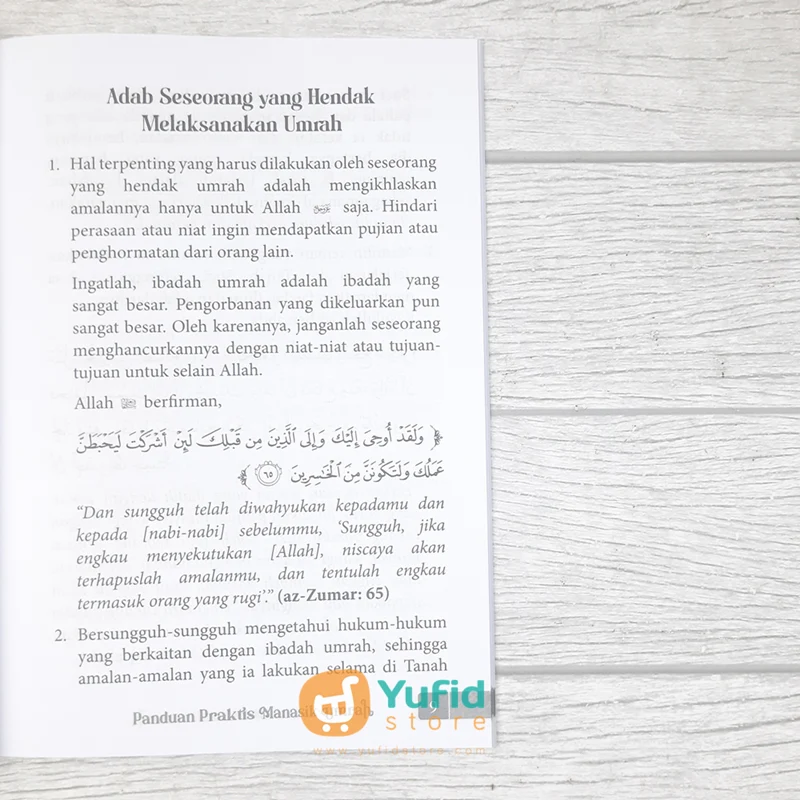 Adab Seseorang yang Hendak
Melaksanakan Umrah
1. Hal terpenting yang harus dilakukan oleh seseorang
yang hendak umrah adalah mengikhlaskan
amalannya hanya untuk Allah saja. Hindari
perasaan atau niat ingin mendapatkan pujian atau
penghormatan dari orang lain.
Ingatlah, ibadah umrah adalah ibadah yang
sangat besar. Pengorbanan yang dikeluarkan pun
sangat besar. Oleh karenanya, janganlah seseorang
menghancurkannya dengan niat-niat atau tujuan-
tujuan untuk selain Allah.
Allah berfirman,
﴿ وَلَقَدْ أُوحِىَ إِلَيْكَ وَإِلَى ٱلَّذِينَ مِن قَبْلِكَ لَئِنْ أَشْرَكْتَ لَيَحْبَطَنَّ
عَمَلُكَ وَلَتَكُونَنَّ مِنَ ٱلْخَـٰسِرِينَ ٦٥ ﴾
“Dan sungguh telah diwahyukan kepadamu dan
kepada [nabi-nabi] sebelummu, ‘Sungguh, jika
engkau menyekutukan [Allah], niscaya akan
terhapuslah amalanmu, dan tentulah engkau
termasuk orang yang rugi’.” (az-Zumar: 65)
2. Bersungguh-sungguh mengetahui hukum-hukum
yang berkaitan dengan ibadah umrah, sehingga
amalan-amalan yang ia lakukan selama di Tanah
Panduan Praktis Manasik Umrah
Yufid
store
www.yufidstore.com